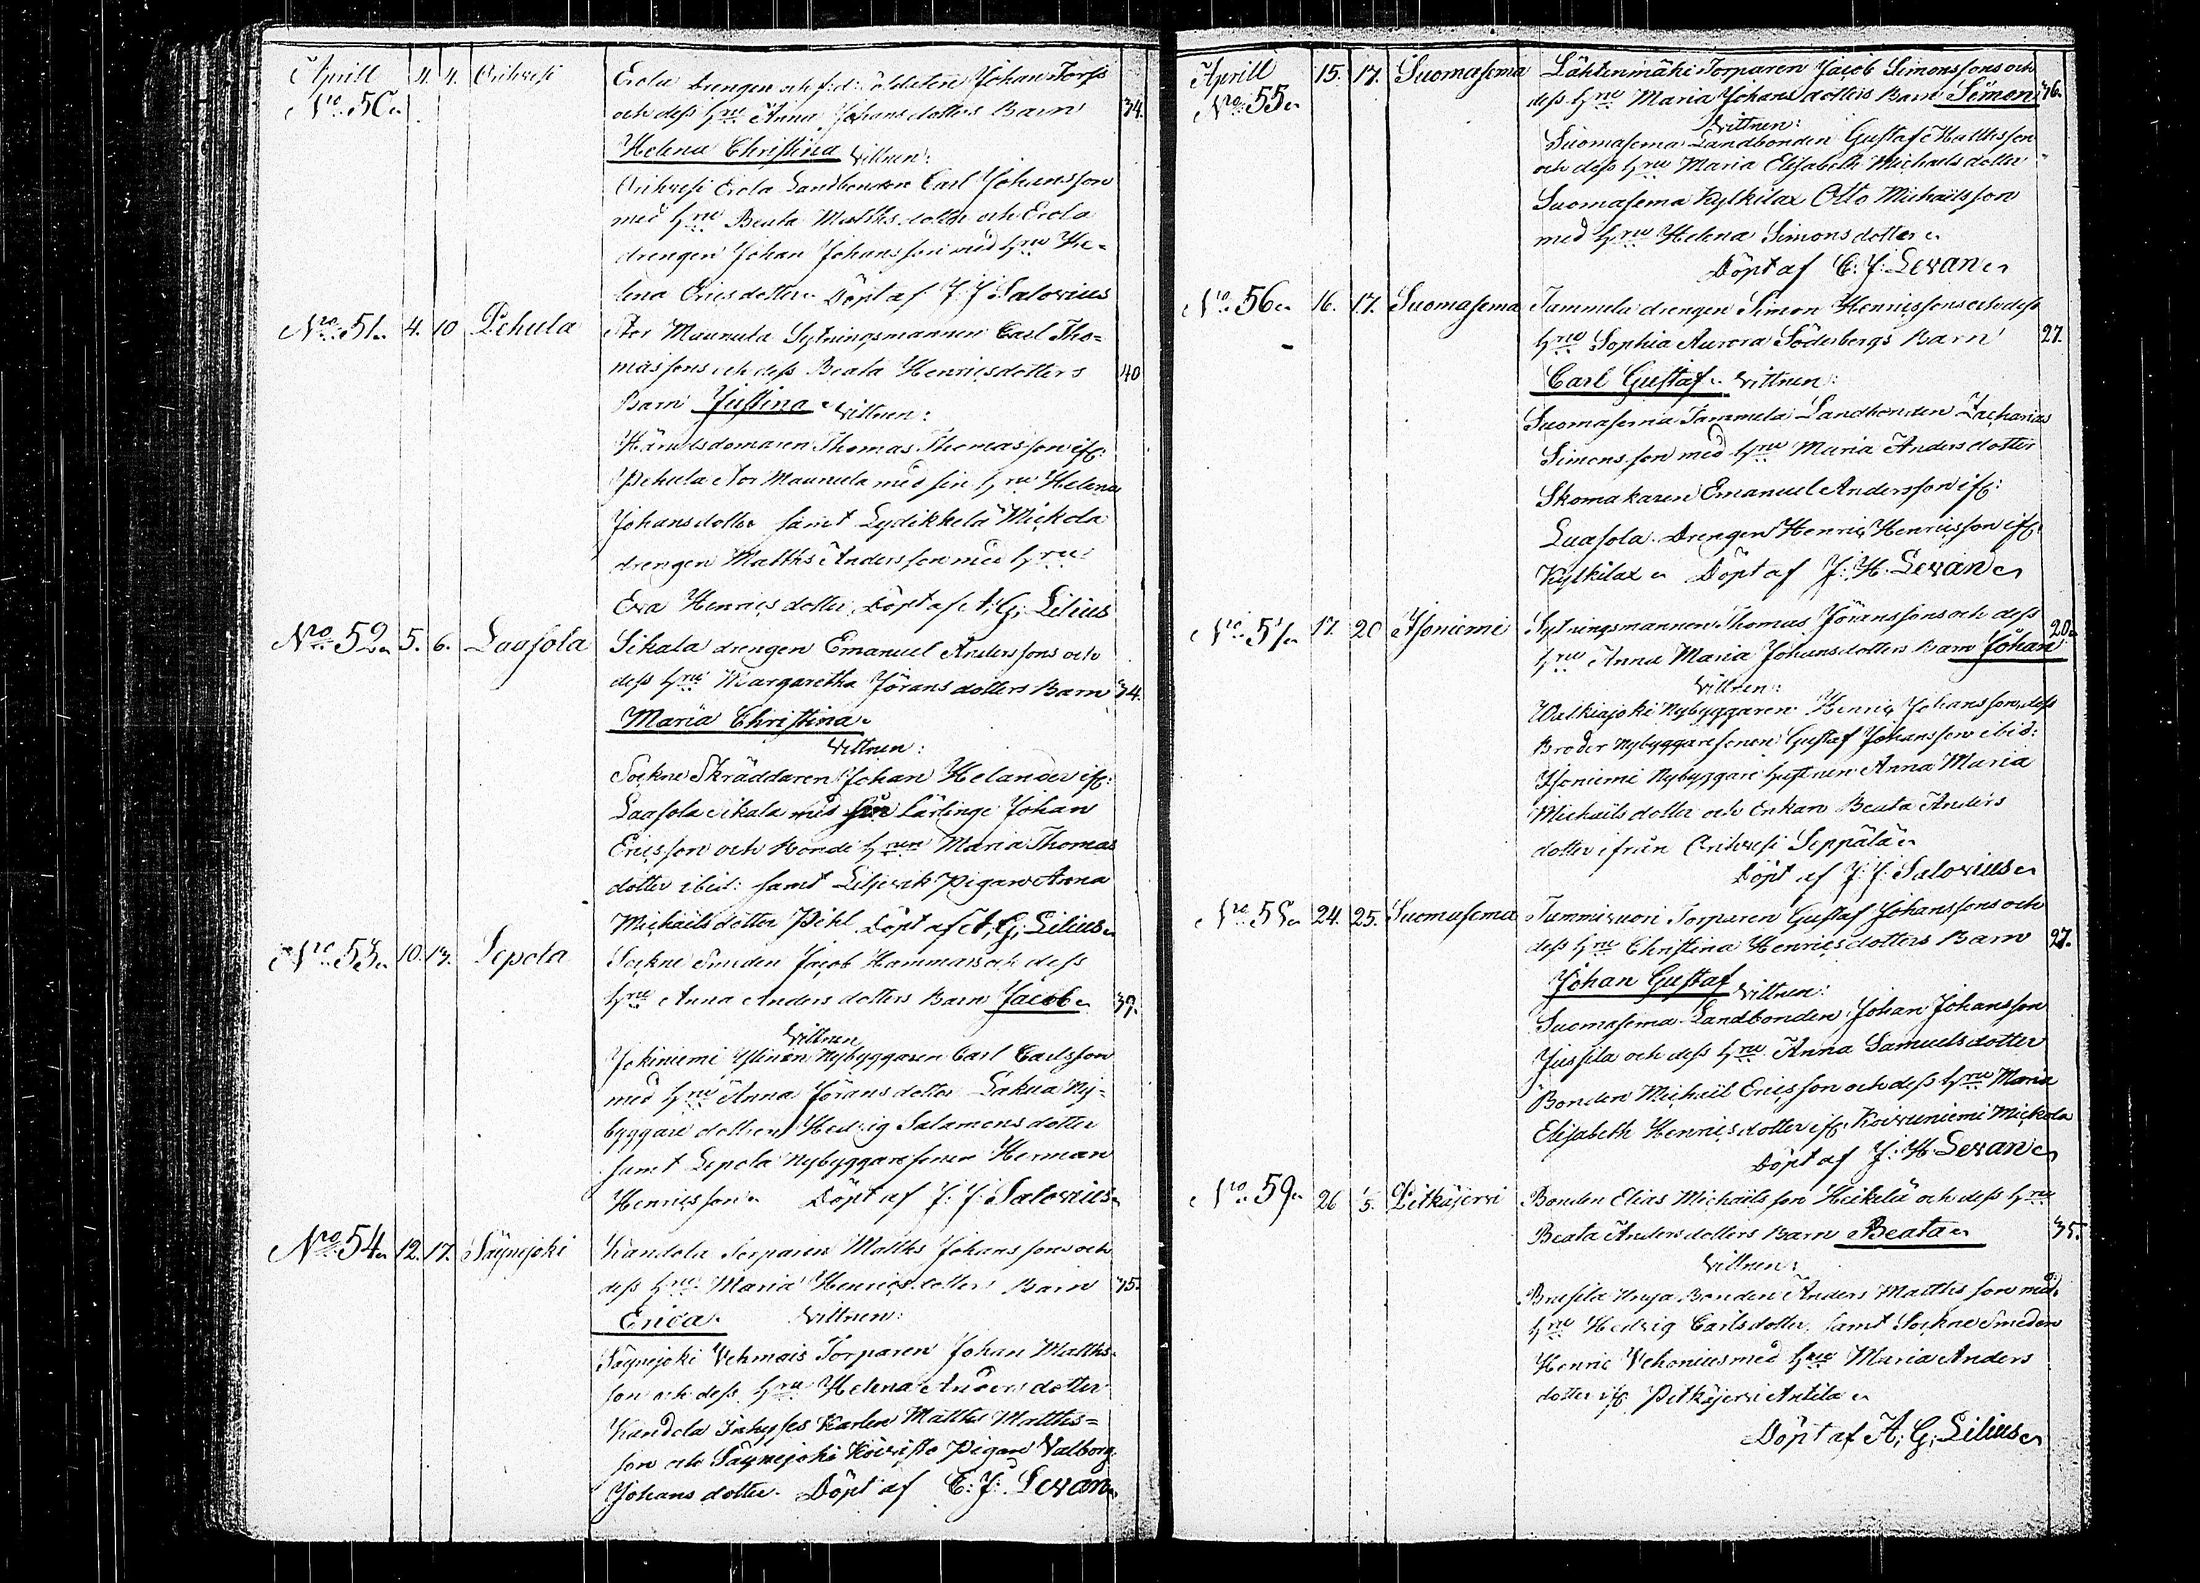 Aprill 4. 4. Orihvesi Erola drengen och f.d. Soldaten Johan Forss
No 50. och dess hru Anna Johansdotters Barn 34.
Helena Christina Vittnen:
Orihvesi Erola Landbonden Carl Johansson
med hru Beata Matthsdotter och Erola
drengen Johan Johansson med hru He-
lena Ericsdotter. Döpt af J: J: Salovius
No 51. 4. 10 Pehula Stor Maunula Sytningsmannen Carl Tho-
massons och dess Beata Henricsdotters 40
Barn Justina. Vittnen:
Häradsdomaren Thomas Thomasson ifr:
Pehula Stor Maunula med sin hru Helena
Johansdotter samt Lydikkela Mickola
drengen Matths Andersson med hru
Eva Henricsdotter, Döpt af A: G: Lilius
No 52. 5. 6. Laasola Sikala drengen Emanuel Anderssons och
dess hru Margaretha Jöransdotters Barn 34.
Maria Christina.
Vittnen:
Sockne Skräddaren Johan Helander ifr:
Laasola Sikala med sin Lärlinge Johan
Ericsson och Bonde hrun Maria Thomas
dotter ibid: samt Pigan Anna
Michailsdotter Pihl Döpt af A. G. Lilius
No 53. 10. 13. Lepola Sockne Smeden Jacob Hammars och dess
hru Anna Andersdotters Barn Jacob. 39.
Vittnen
Jokiniemi Ylinen Nybyggaren Carl Carlsson
med hru Anna Jöransdotter Lakua Ny-
byggare dottren Hedvig Salomonsdotter
samt Lepola Nybyggaresonen Herman
Henricsson Döpt af J: J: Salovius
No 54. 12. 17. Säynejoki Kandola Torparen Matths Johanssons och
dess hru Maria Henricsdotters Barn 75.
Erica. Vittnen:
Säynejoki Vehmais Torparen Johan Matths-
son och dess hru Helena Andersdotter
Kandola Inhyses Karlen Matths Matths-
son och Säynejoki Koivisto Pigan Valborg
Johansdotter. Döpt af C: J: Levan
Aprill 15. 17. Suomasema Lähtenmäki Torparen Jacob Simonssons och
No 55. dess hru Maria Johansdotters Barn Simon 36.
Vittnen:
Suomasema Landbonden Gustaf Matthsson
och dess hru Maria Elisabeth Michaelsdotter
Suomasema Kylkilax Otto Michailsson
med hru Helena Simonsdotter
Döpt af C: J: Levan
No 56. 16. 17. Suomasema Tammela drengen Simon Henricssons och dess
hru Sophia Aurora Söderbergs Barn 27.
Carl Gustaf. Vittnen:
Suomasema Tammela Landbonden Zacharias
Simonsson med hru Maria Andersdotter
Skomakaren Emanuel Andersson ifr:
Luasola. Drengen Henric Henricsson ifr.
Kylkilax Döpt af J: H. Levan
No 57. 17. 20 Isoniemi Sytningsmannen Thomas Jöranssons och dess 20.
hru Anna Maria Johansdotters Barn Johan
Vittnen:
Walkiajoki Nybyggaren Henric Johansson, dess
Broder Nybyggaresonen Gustaf Johansson ibid:
Isoniemi Nybyggare hustrun Anna Maria
Michailsdotter och Enkan Beata Anders
dotter ifrån Orihvesi Seppälä
Döpt af J: J: Salovius
No 58. 24. 25. Suomasema Tammivuori Torparen Gustaf Johanssons och
dess hru Christina Henricsdotters Barn 27.
Johan Gustaf Vittnen:
Suomasema Landbonden Johan Johansson
Jussila och dess hru Anna Samuelsdotter
Bonden Michail Ericsson och dess hru Maria
Elisabeth Henricsdotter ifr. Koivuniemi Mickola
Döpt af J: H: Levan
No 59. 26 1/5. Pitkäjervi Bonden Elias Michailsson Heikkilä och dess hru
Beata Andersdotters Barn Beata 35.
Vittnen:
Bonden Anders Matthsson med
hru Hedvig Carlsdotter samt Sockne Smeden
Henric Vehonius med hru Maria Anders
dotter ifr. Pitkäjervi Antila
Döpt af A. G. Lilius